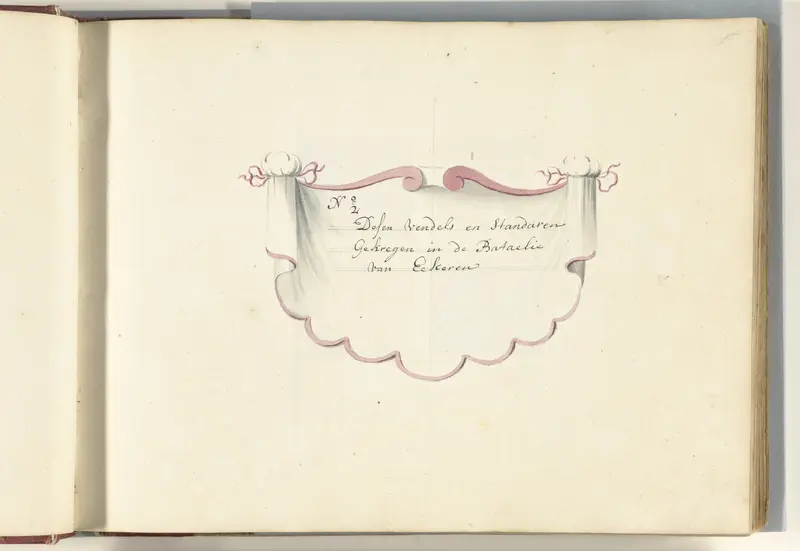 Nº 2
Desen Vendels en Standaren
Gekregen in de Bataelie
van Eckeren